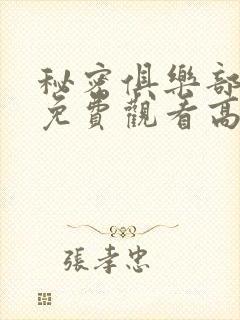 秘密俱樂部
免費觀看高
張孝忠